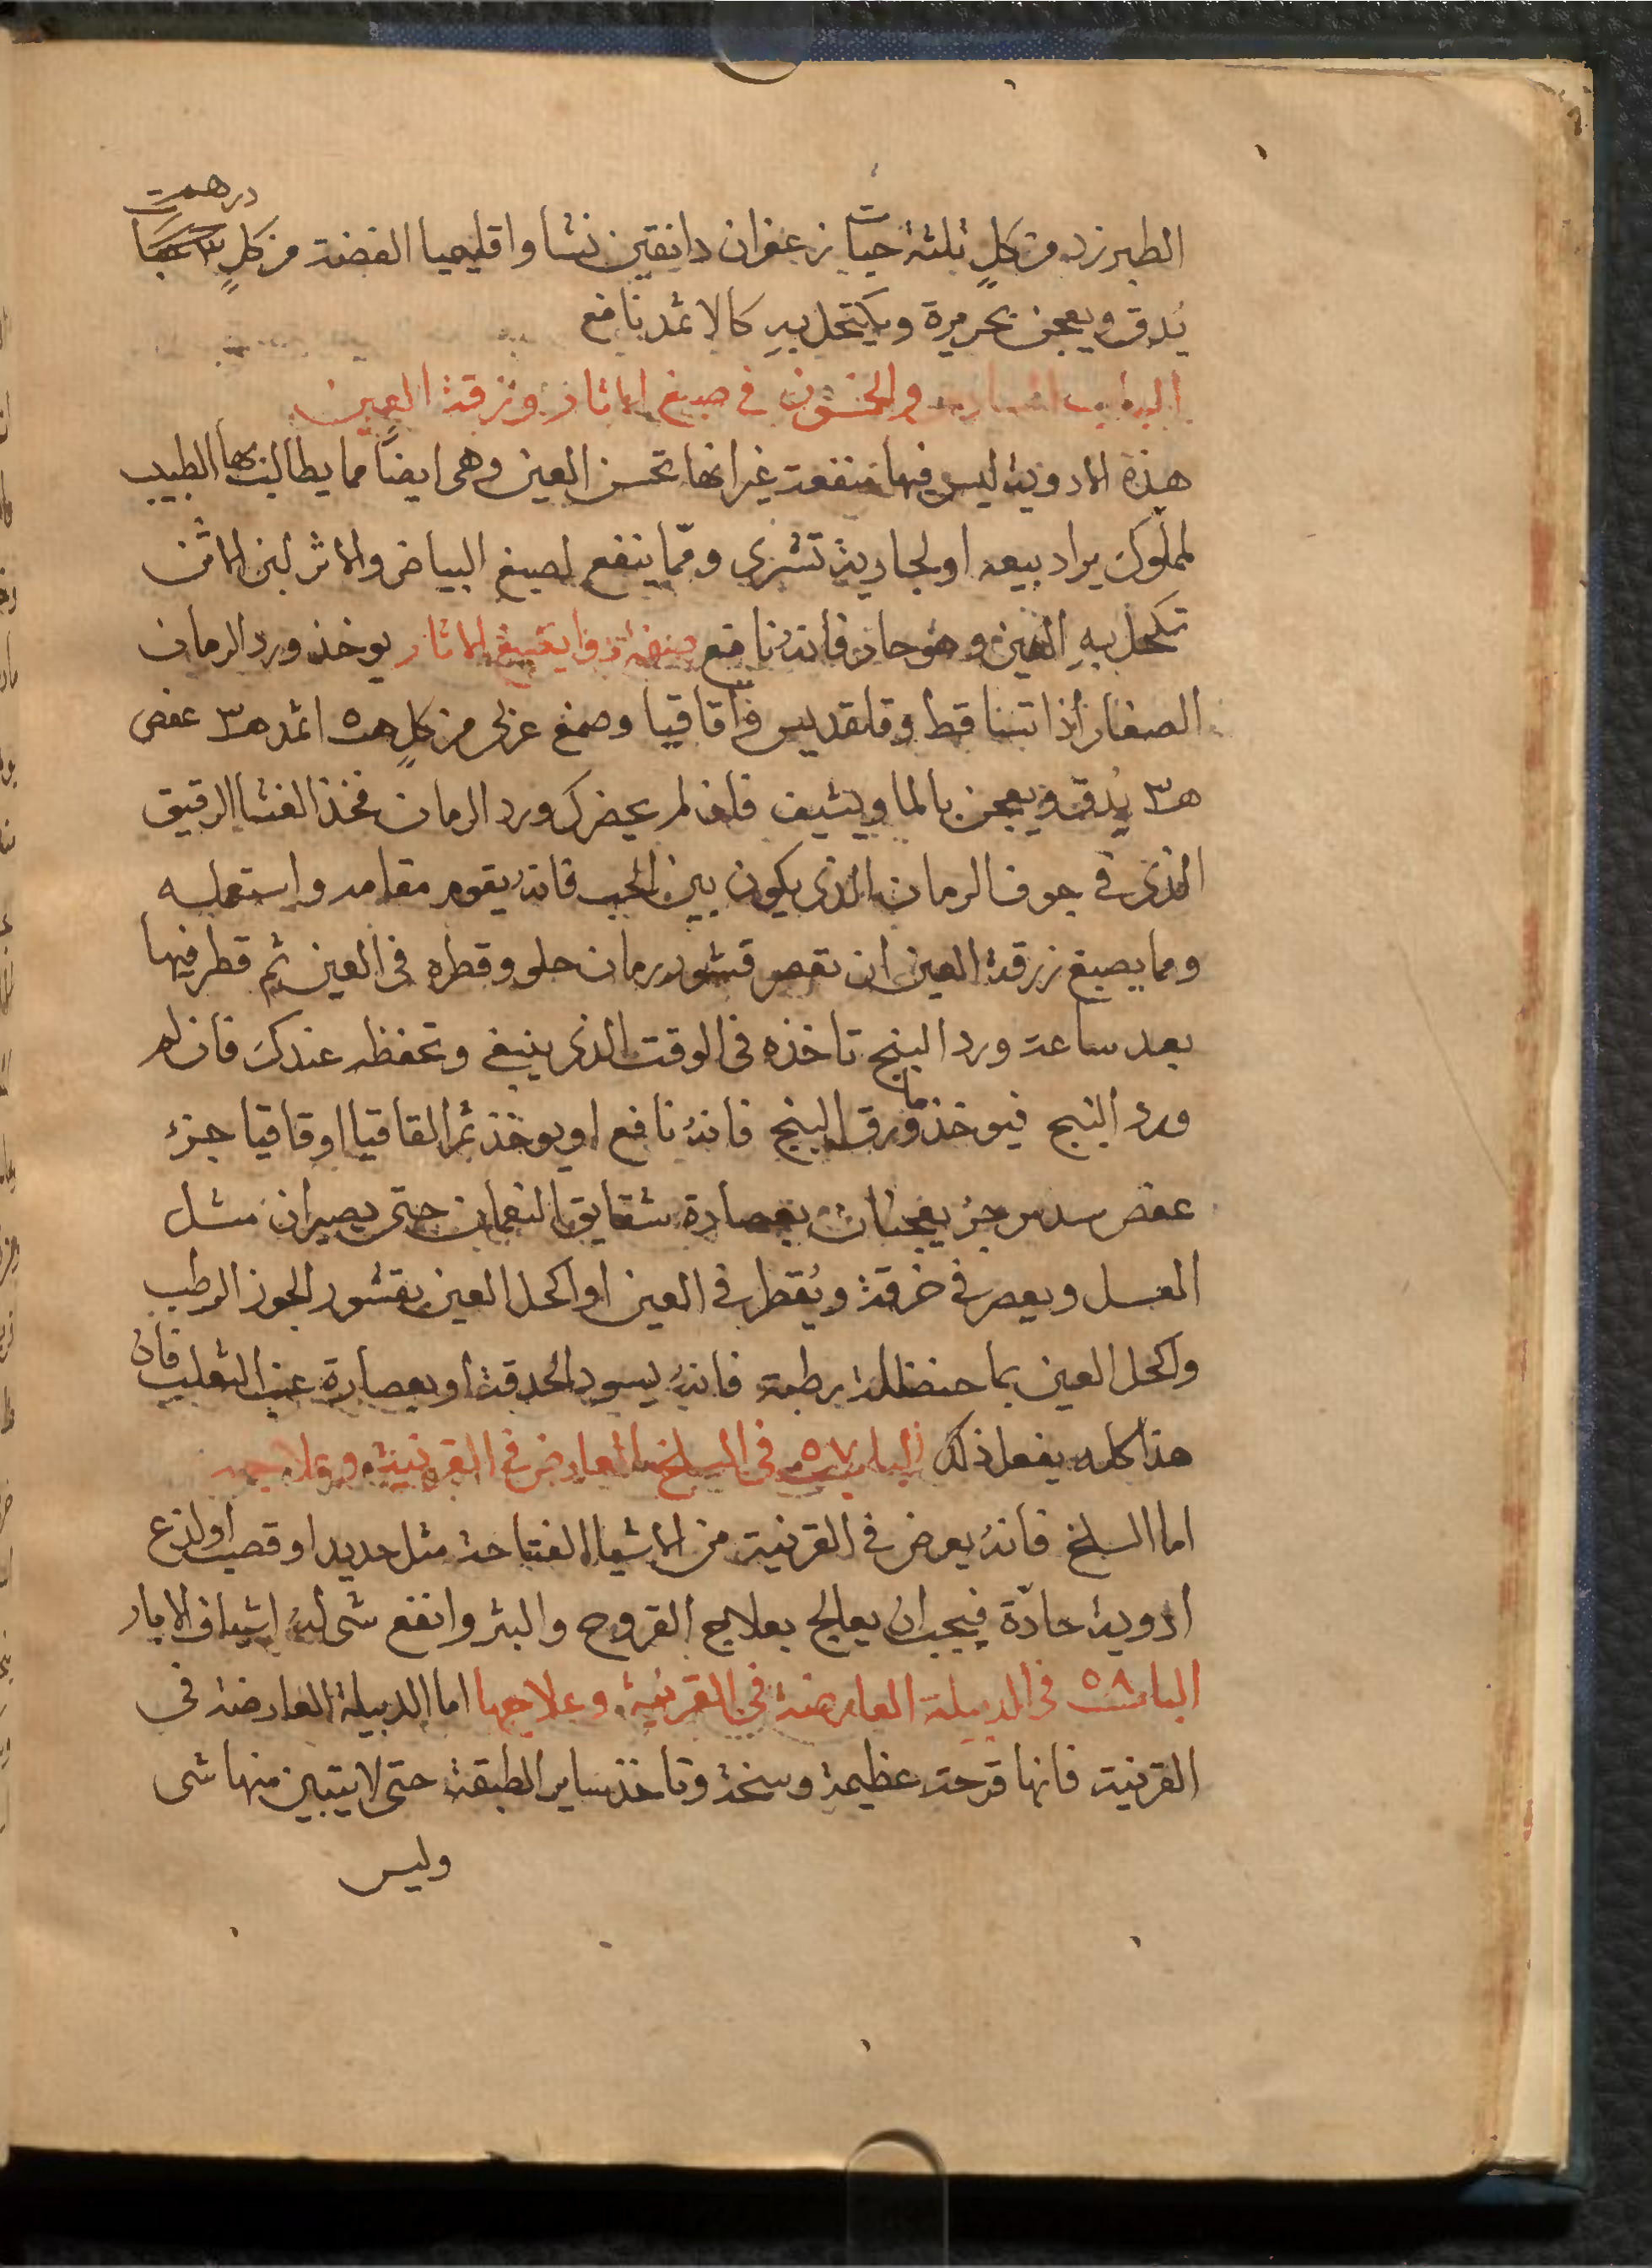 درهمين
الطبرزد من كلٍ ثلثة حبات زعفران دانقين نشا واقليميا الفضة من كلٍ
يُدق ويعجن بحريرة ويكتحل به كالاثمد نافع
الباب السادس والخمسون في صبغ الاثار وزرقة العين
هذه الادوية ليس فيها منفعة غير انها تحسن العين وهى ايضاً مما يطالب بها الطبيب
لمملوك يراد بيعه او لجارية تشترى ومّما ينفع لصبغ البياض والاثر لبن الاتن
تكحل به العين وهو حار فانه نافع صفة دوا يصبغ الاثار يوخذ ورد الرمان
الصغار اذا تساقط وقلقديس واقاقيا وصمغ عربى من كلٍ ه٥ اثمد ه٣ عفص
ه٣ يُدق ويعجن بالما ويشيف فان لم يحضرك ورد الرمان فخذ الغشا الرقيق
الذى في جوف الرمان الذى يكون بين الحب فانه يقوم مقامه واستعمله
ومما يصبغ زرقة العين ان تعصر قشور رمان حلو وقطره فى العين ثم قطر فيها
بعد ساعة ورد البنج تاخذه فى الوقت الذى ينبغى وتحفظه عندك فان لم
ورد البنج فيوخذ ما ورق البنج فانه نافع او يوخذ ثمر القاقيا او قاقيا جزء
عفص سدس جزء يعجنان بعصارة شقايق النعمان حتى يصيران مثل
العسل ويعصر في خرقة ويُقطر في العين او اكحل العين بقشور الجوز الرطب
واكحل العين بما حنضلة رطبة فانه يسود الحدقة او بعصارة عنب الثعلب فان
هذا كله يفعل ذلك الباب ٥٧ فى السلخ العارض في القرنية وعلاجه
اما السلخ فانه يعرض في القرنية من الاشيا الفتاحة مثل حديد او قصب او لذع
ادوية حادّة فيجب ان يعالج بعلاج القروح والبثر وانفع شى له اشياف الابار
الباب ٥٨ فى الدبيلة العارضة فى القرنية وعلاجها اما الدبيلة العارضة فى
القرنية فانها قرحة عظيمة وسخة وتاخذ ساير الطبقة حتى لا يتبين منها شى
وليس